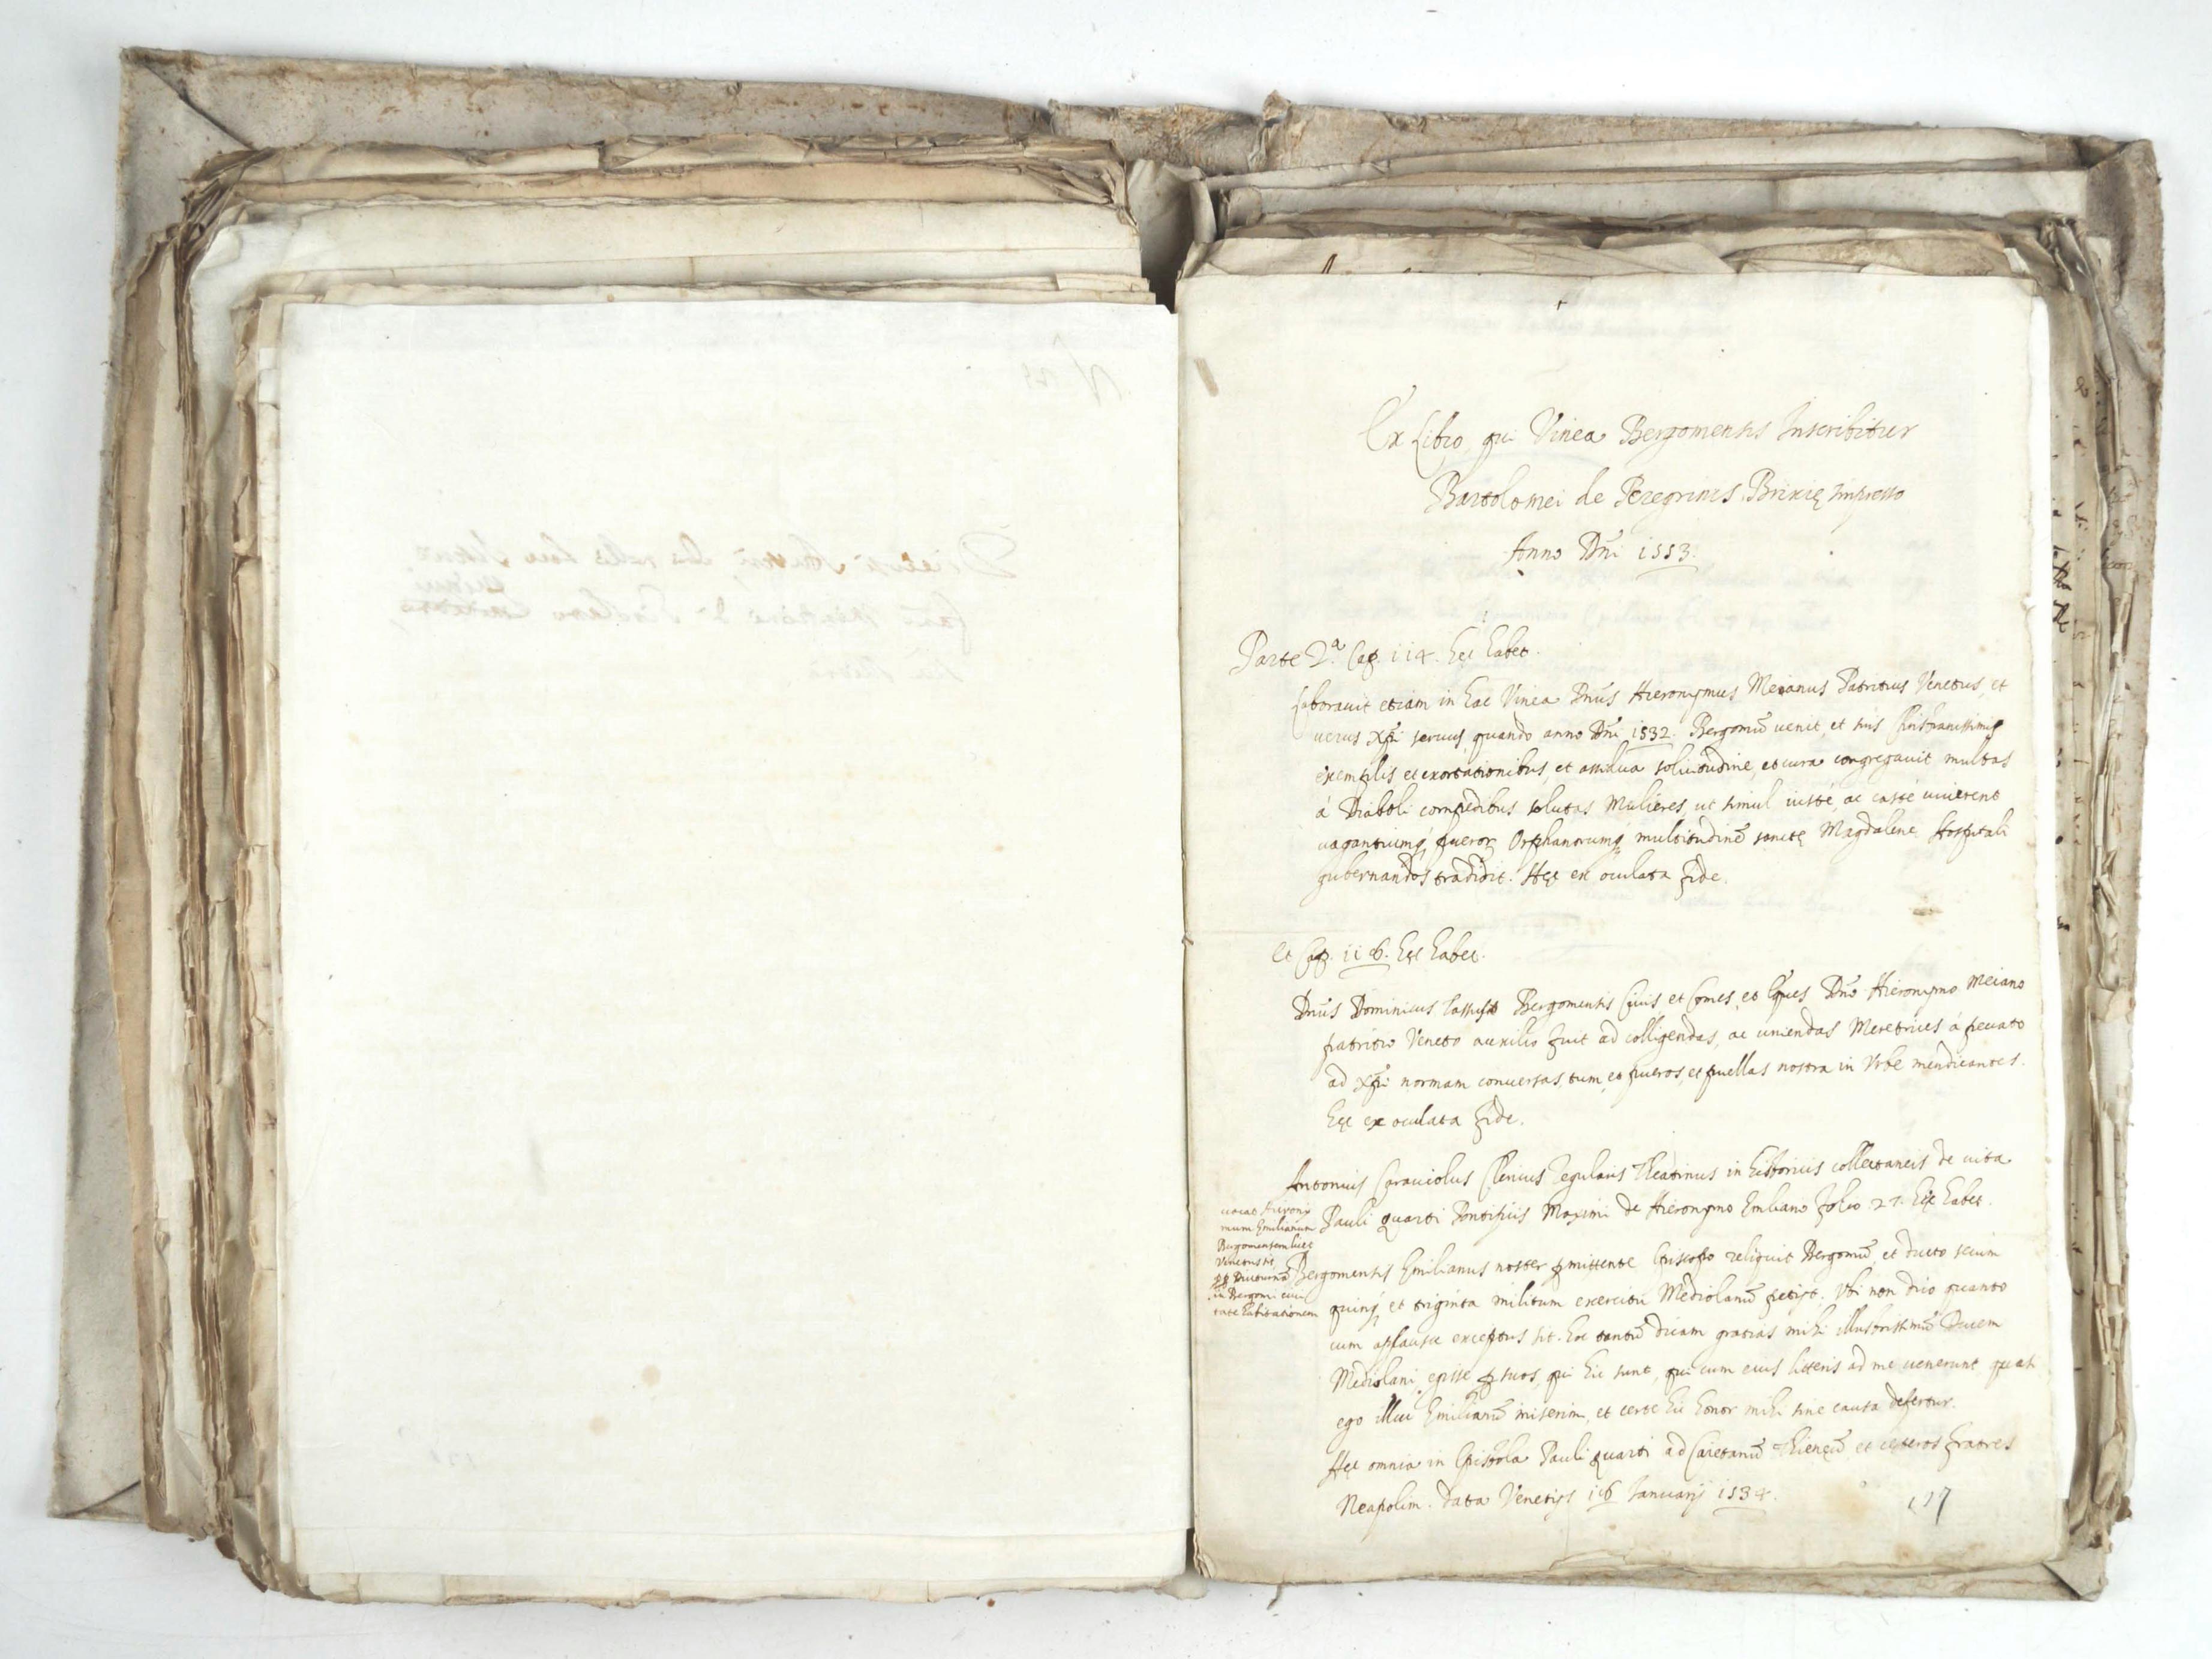 Ex Libro, qui Vinea Bergomensis Inscribitur
Bartolomei de Peregrinis Brixię Impresso
Anno Dni 1553.
Parte 2.ª Cap. 114. hęc habet.
Laborauit etiam in hac Vinea Dnũs Hieronymus Meianus Patritius Venetus, et
uerus Xp̃i seruus, quando anno Dni 1532. Bergomũ uenit, et suis Christianissimis
exemplis et exortationibus, et assidua solicitudine, et cura congregauit multas
á Diaboli compedibus solutas Mulieres, ut simul iusté, ac casté uiuerent
uagantiumq; pueror, Orphanorumq; multitudinẽ sanctę Magdalene Hospitali
gubernandos tradidit. Hęc ex oculata fide.
Et Cap. 116. hęc habet.
Dnũs Dominicus Tassus Bergomensis Ciuis, et Comes, et Eques Dnõ Hieronymo Meiano
patritio Veneto auxilio fuit ad colligendas, ac uniendas Meretrices á peccato
ad Xp̃i normam conuersas, tum, et pueros, et puellas nostra in Vrbe mendicantes.
hęc ex oculata fide.
Antonius Caracciolus Clericus Regularis Theatinus in historicis collectaneis de uita
Pauli quarti Pontificis Maximi de Hieronymo Emiliano folio 27. hęc habet.
uocat Hierony
mum Emilianum
Bergomensem licet
Venetus sit,
pp Diuturnã
in Bergomi ciui
tate habitationem
Bergomensis Emilianus noster pmittente Episcopo reliquit Bergomũ, et ducto secum
quinq; et triginta militum exercitu Mediolanũ petijt. Vbi non dico quanto
cum applausu exceptus sit. hoc tantũ dicam gratias mihi illustrissimũ Ducem
Mediolani, egisse p suos, qui hic sunt, qui cum eius litteris ad me uenerunt quasi
ego illuc Emilianũ miserim, et certe hic honor mihi sine causa defertur.
Hęc omnia in Epistola Pauli quarti ad Caietanũ Thienęũ, et ceteros fratres
Neapolim. data Venetijs 16 Ianuarij 1534.
197